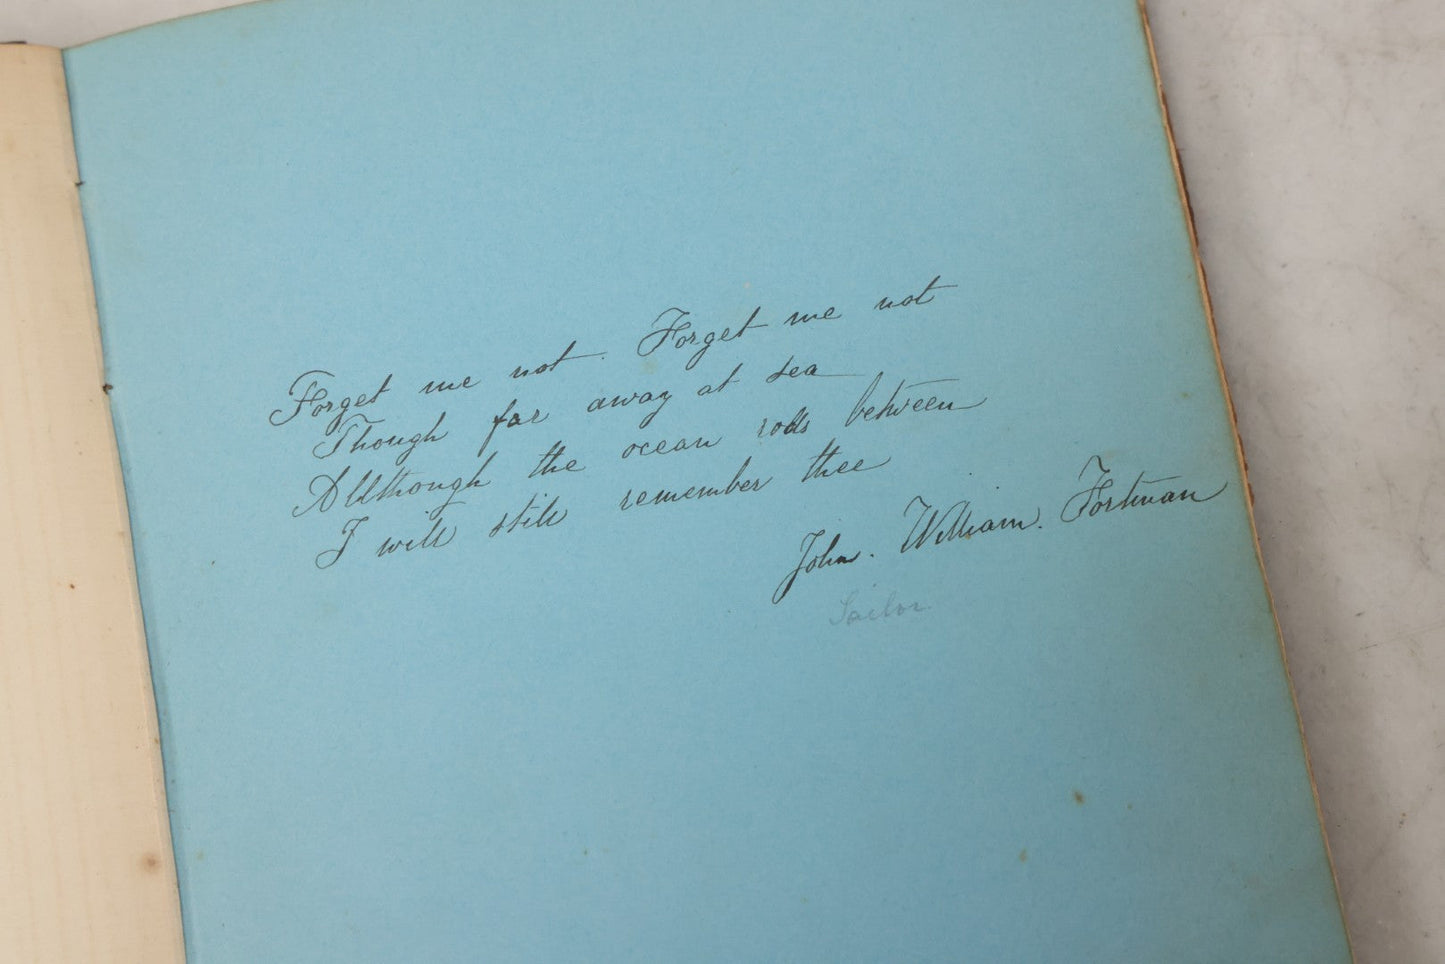 Forget me not. Forget me not
Though far away at sea
Allthough the ocean rolls between
I will still remember thee
John. William. Fortman
Sailor.